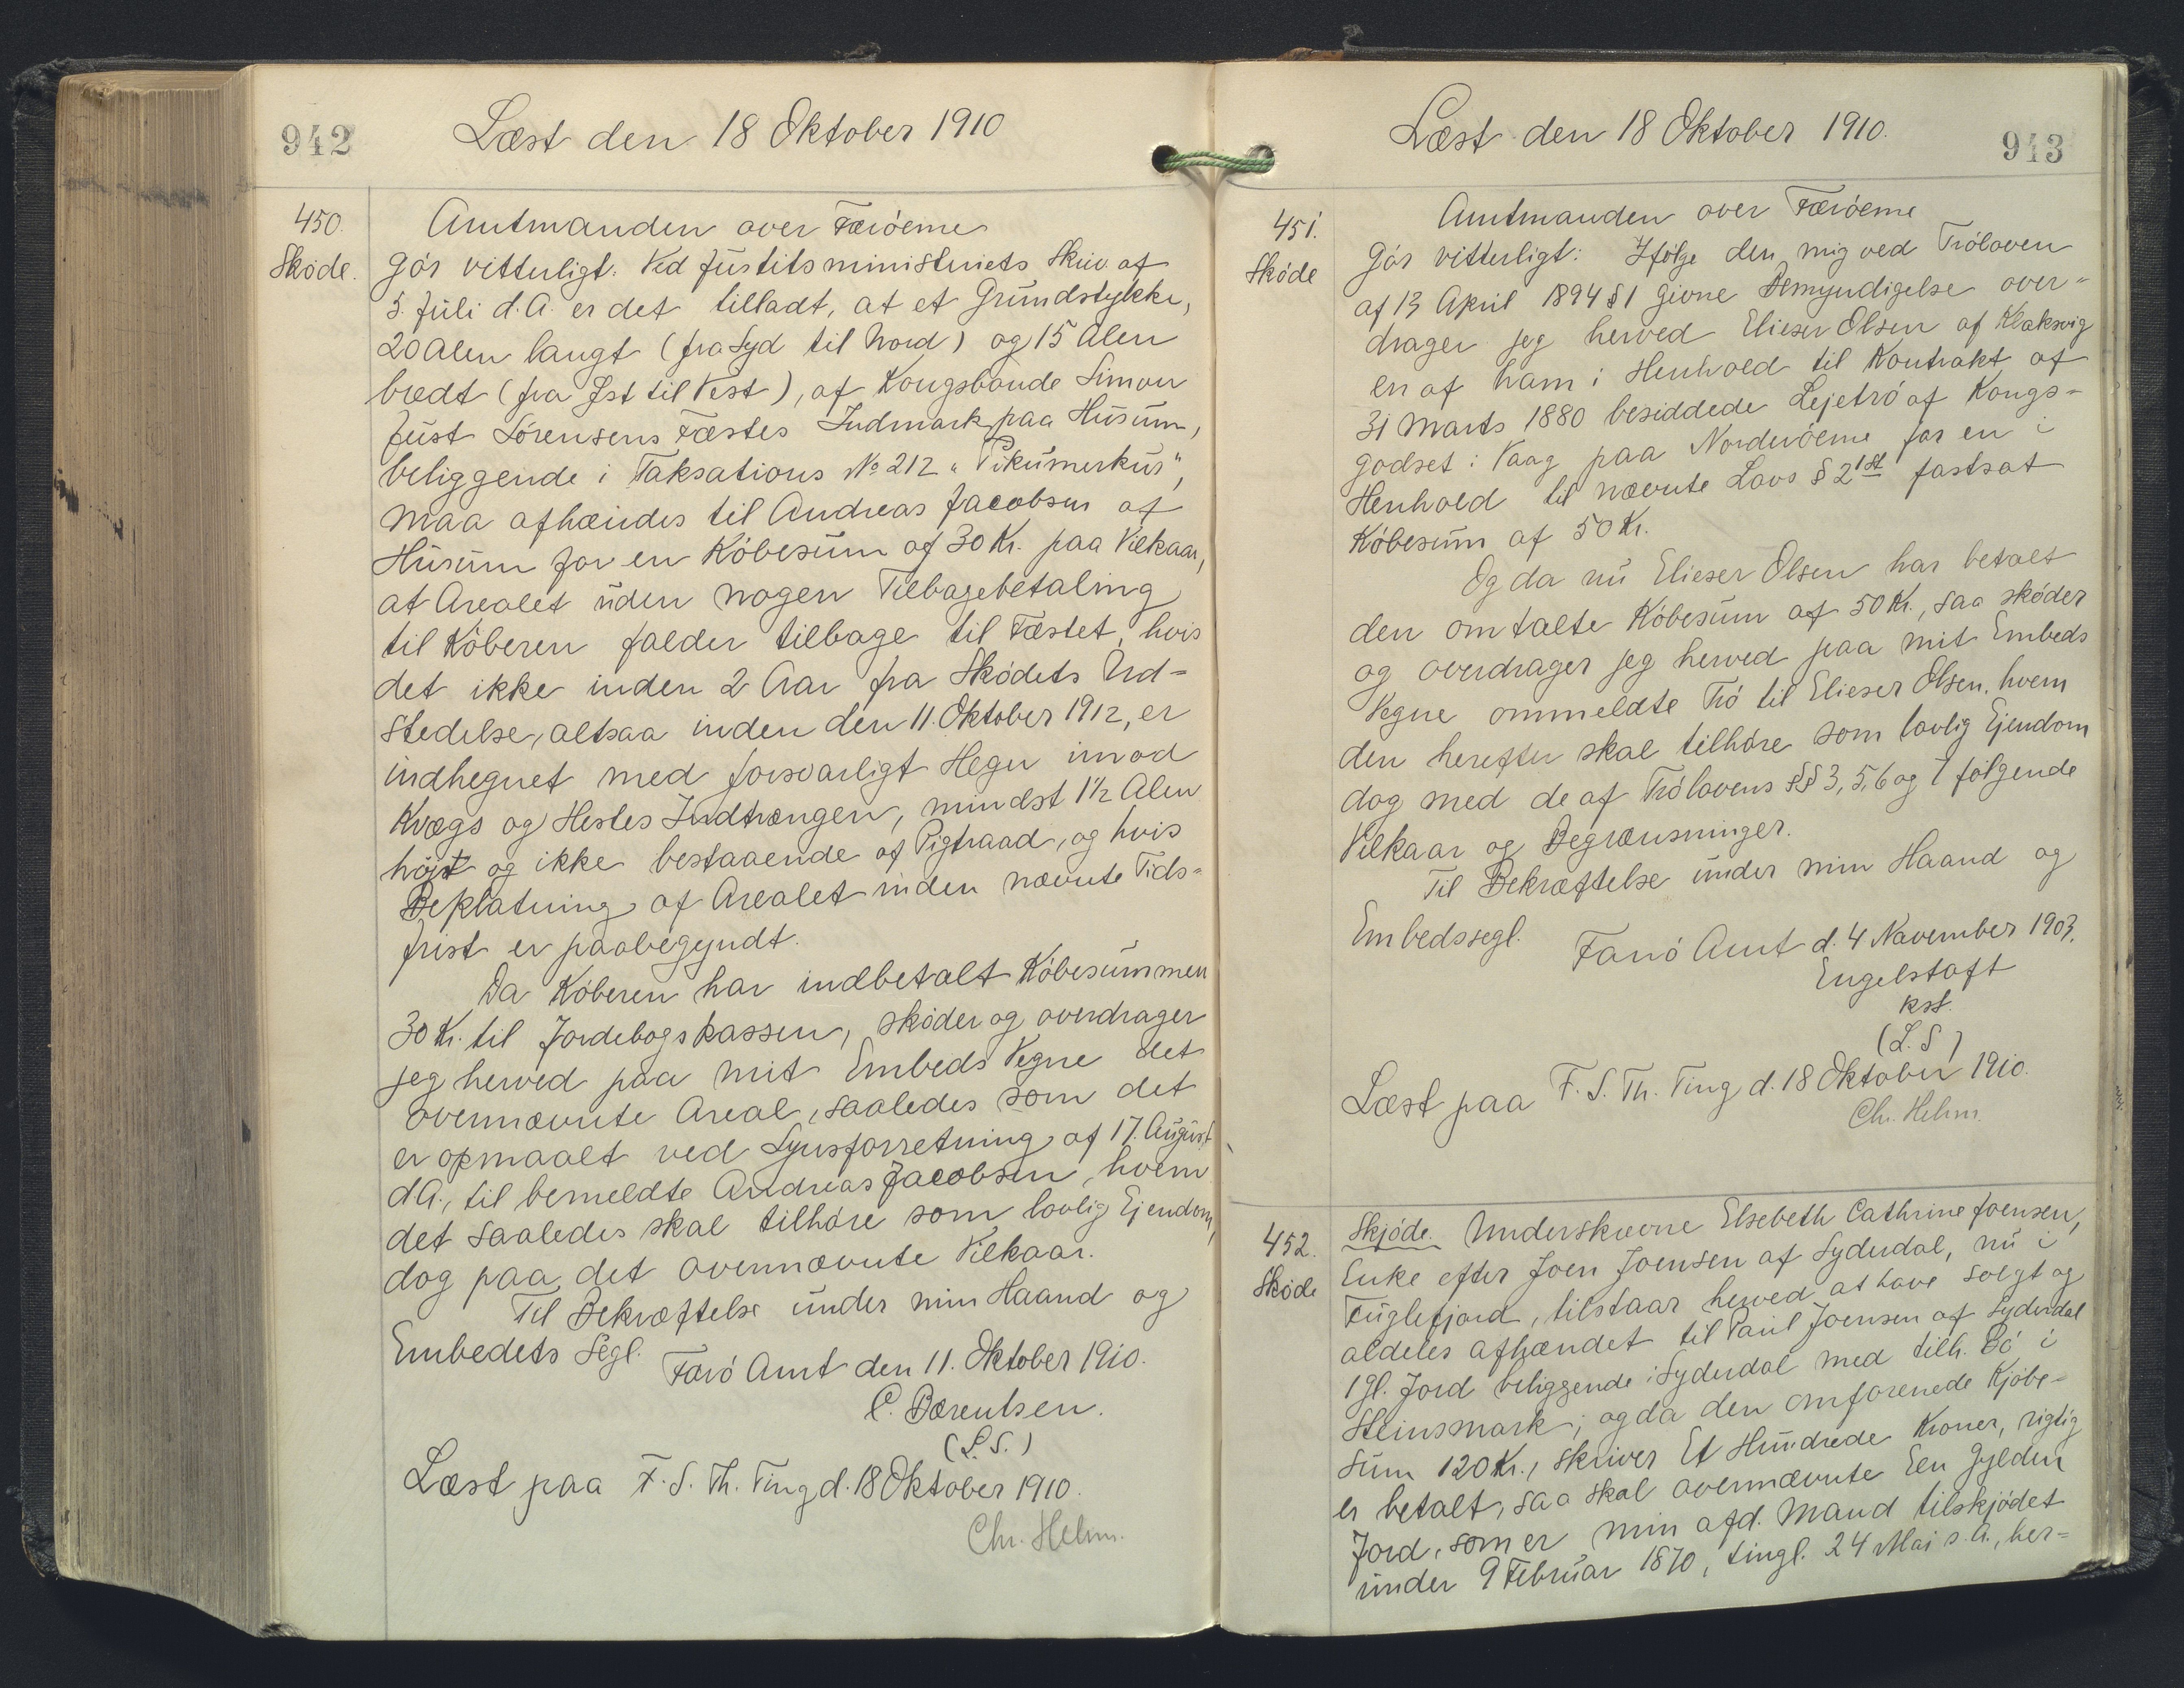 942
Læst den 18 Oktober 1910
450.
Skøde.
Amtmanden over Færøerne
Gør vitterligt: Ved Justitsministeriets Skriv. af
5. Juli d.A. er det tilladt, at et Grundstykke,
20 Alen langt (fra Syd til Nord) og 15 Alen
bredt (fra Øst til Vest), af Kongsbonde Simon
Just Sørensens Fæstes Indmark paa Husum,
beliggende i Taksations № 212 "Pikumerkur",
maa afhændes til Andreas Jacobsen af
Husum for en Købesum af 30 Kr. paa Vilkaar,
at Arealet uden nogen Tilbagebetaling
til Køberen falder tilbage til Fæstet, hvis
det ikke inden 2 Aar fra Skødets Ud=
stedelse, altsaa inden den 11. Oktober 1912, er
indhegnet med forsvarligt Hegn imod
Kvægs og Hestes Indtrængen, mindst 1½ Alen
højt og ikke bestaaende af Pigtraad, og hvis
Beplatning af Arealet inden nævnte Tids=
frist er paabegyndt.
Da Køberen har indbetalt Købesummen
30 Kr. til Jordebogskassen, skøder og overdrager
jeg herved paa mit Embeds Vegne det
ovennævnte Areal, saaledes som det
er opmaalt ved Synsforretning af 17. August
d.A., til bemeldte Andreas Jacobsen, hvem
det saaledes skal tilhøre som lovlig Ejendom,
dog paa det ovennævnte Vilkaar.
Til Bekræftelse under min Haand og
Embedets Segl.
Færø Amt den 11. Oktober 1910.
C. Bærentsen.
(L.S.)
Læst paa F. S. Th. Ting d. 18 Oktober 1910.
Chr. Helm.
Læst den 18 Oktober 1910.
943
451.
Skøde
Amtmanden over Færøerne
Gør vitterligt: Ifølge den mig ved Trøloven
af 13 April 1894 § 1 givne Bemyndigelse over=
drager jeg herved Elieser Olsen af Klaksvig
en af ham i Henhold til Kontrakt af
31 Marts 1880 besiddede Lejetrø af Kongs=
godset i Vaag paa Norderøerne for en i
Henhold til nævnte Lovs § 2 1st fastsat
Købesum af 50 Kr.
Og da nu Elieser Olsen har betalt
den omtalte Købesum af 50 Kr., saa skøder
og overdrager jeg herved paa mit Embeds
Vegne ommeldte Trø til Elieser Olsen, hvem
den herefter skal tilhøre som lovlig Ejendom
dog med de af Trølovens §§ 3, 5, 6 og 7 følgende
Vilkaar og Begrænsninger.
Til Bekræftelse under min Haand og
Embedssegl.
Færø Amt d. 4 November 1903.
Engelstoft
kst.
(L.S)
Læst paa F. S. Th. Ting d. 18 Oktober 1910.
Chr. Helm.
452.
Skøde
Skjøde. Underskrevne Elsebeth Cathrine Joensen,
Enke efter Joen Joensen af Syderdal, nu i
Fuglefjord, tilstaar herved at have solgt og
aldeles afhændet til Paul Joensen af Syderdal
1 Gl. Jord beliggende i Syderdal med tilh. Bø i
Steinsmark; og da den omforenede Kjøbe-
sum 120 Kr., skriver Et Hundrede Kroner, rigtig
er betalt, saa skal ovennævnte Een Gylden
Jord, som er min afd. Mand tilskjødet
under 9 Februar 1870, tingl. 24 Mai s.A., her=